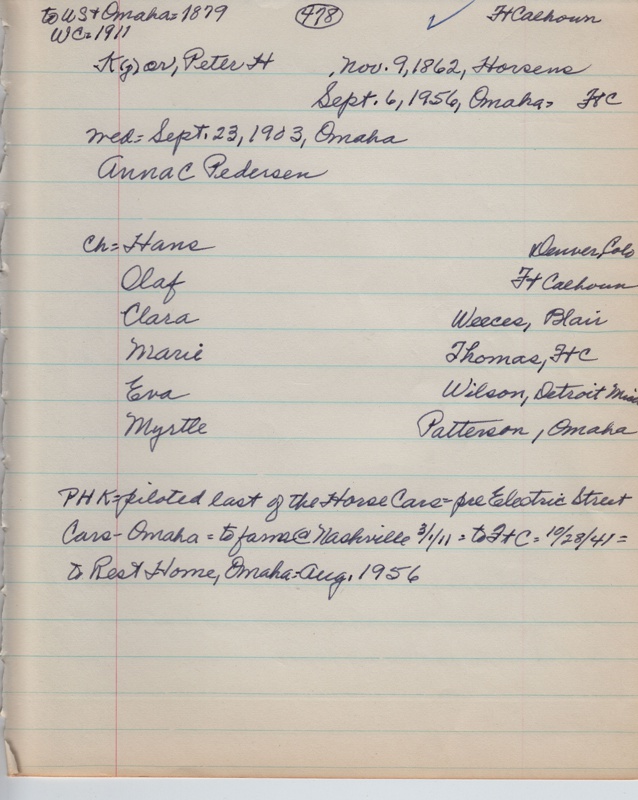 to US + Omaha = 1879 478 Ft Calhoun
WC = 1911
K(j)or, Peter H , Nov. 9, 1862, Horsens
Sept. 6, 1956, Omaha = Ft C
med = Sept. 23, 1903, Omaha
Anna C Pedersen
Ch = Hans Denver, Colo
Olaf Ft Calhoun
Clara Weeces, Blair
Marie Thomas, Ft C
Eva Wilson, Detroit
Myrtle Patterson, Omaha
PHK = piloted last of the Horse Cars = pre Electric Street
Cars - Omaha = to farm @ Nashville 3/1/11 = to Ft C = 10/28/41 =
to Rest Home, Omaha = Aug. 1956